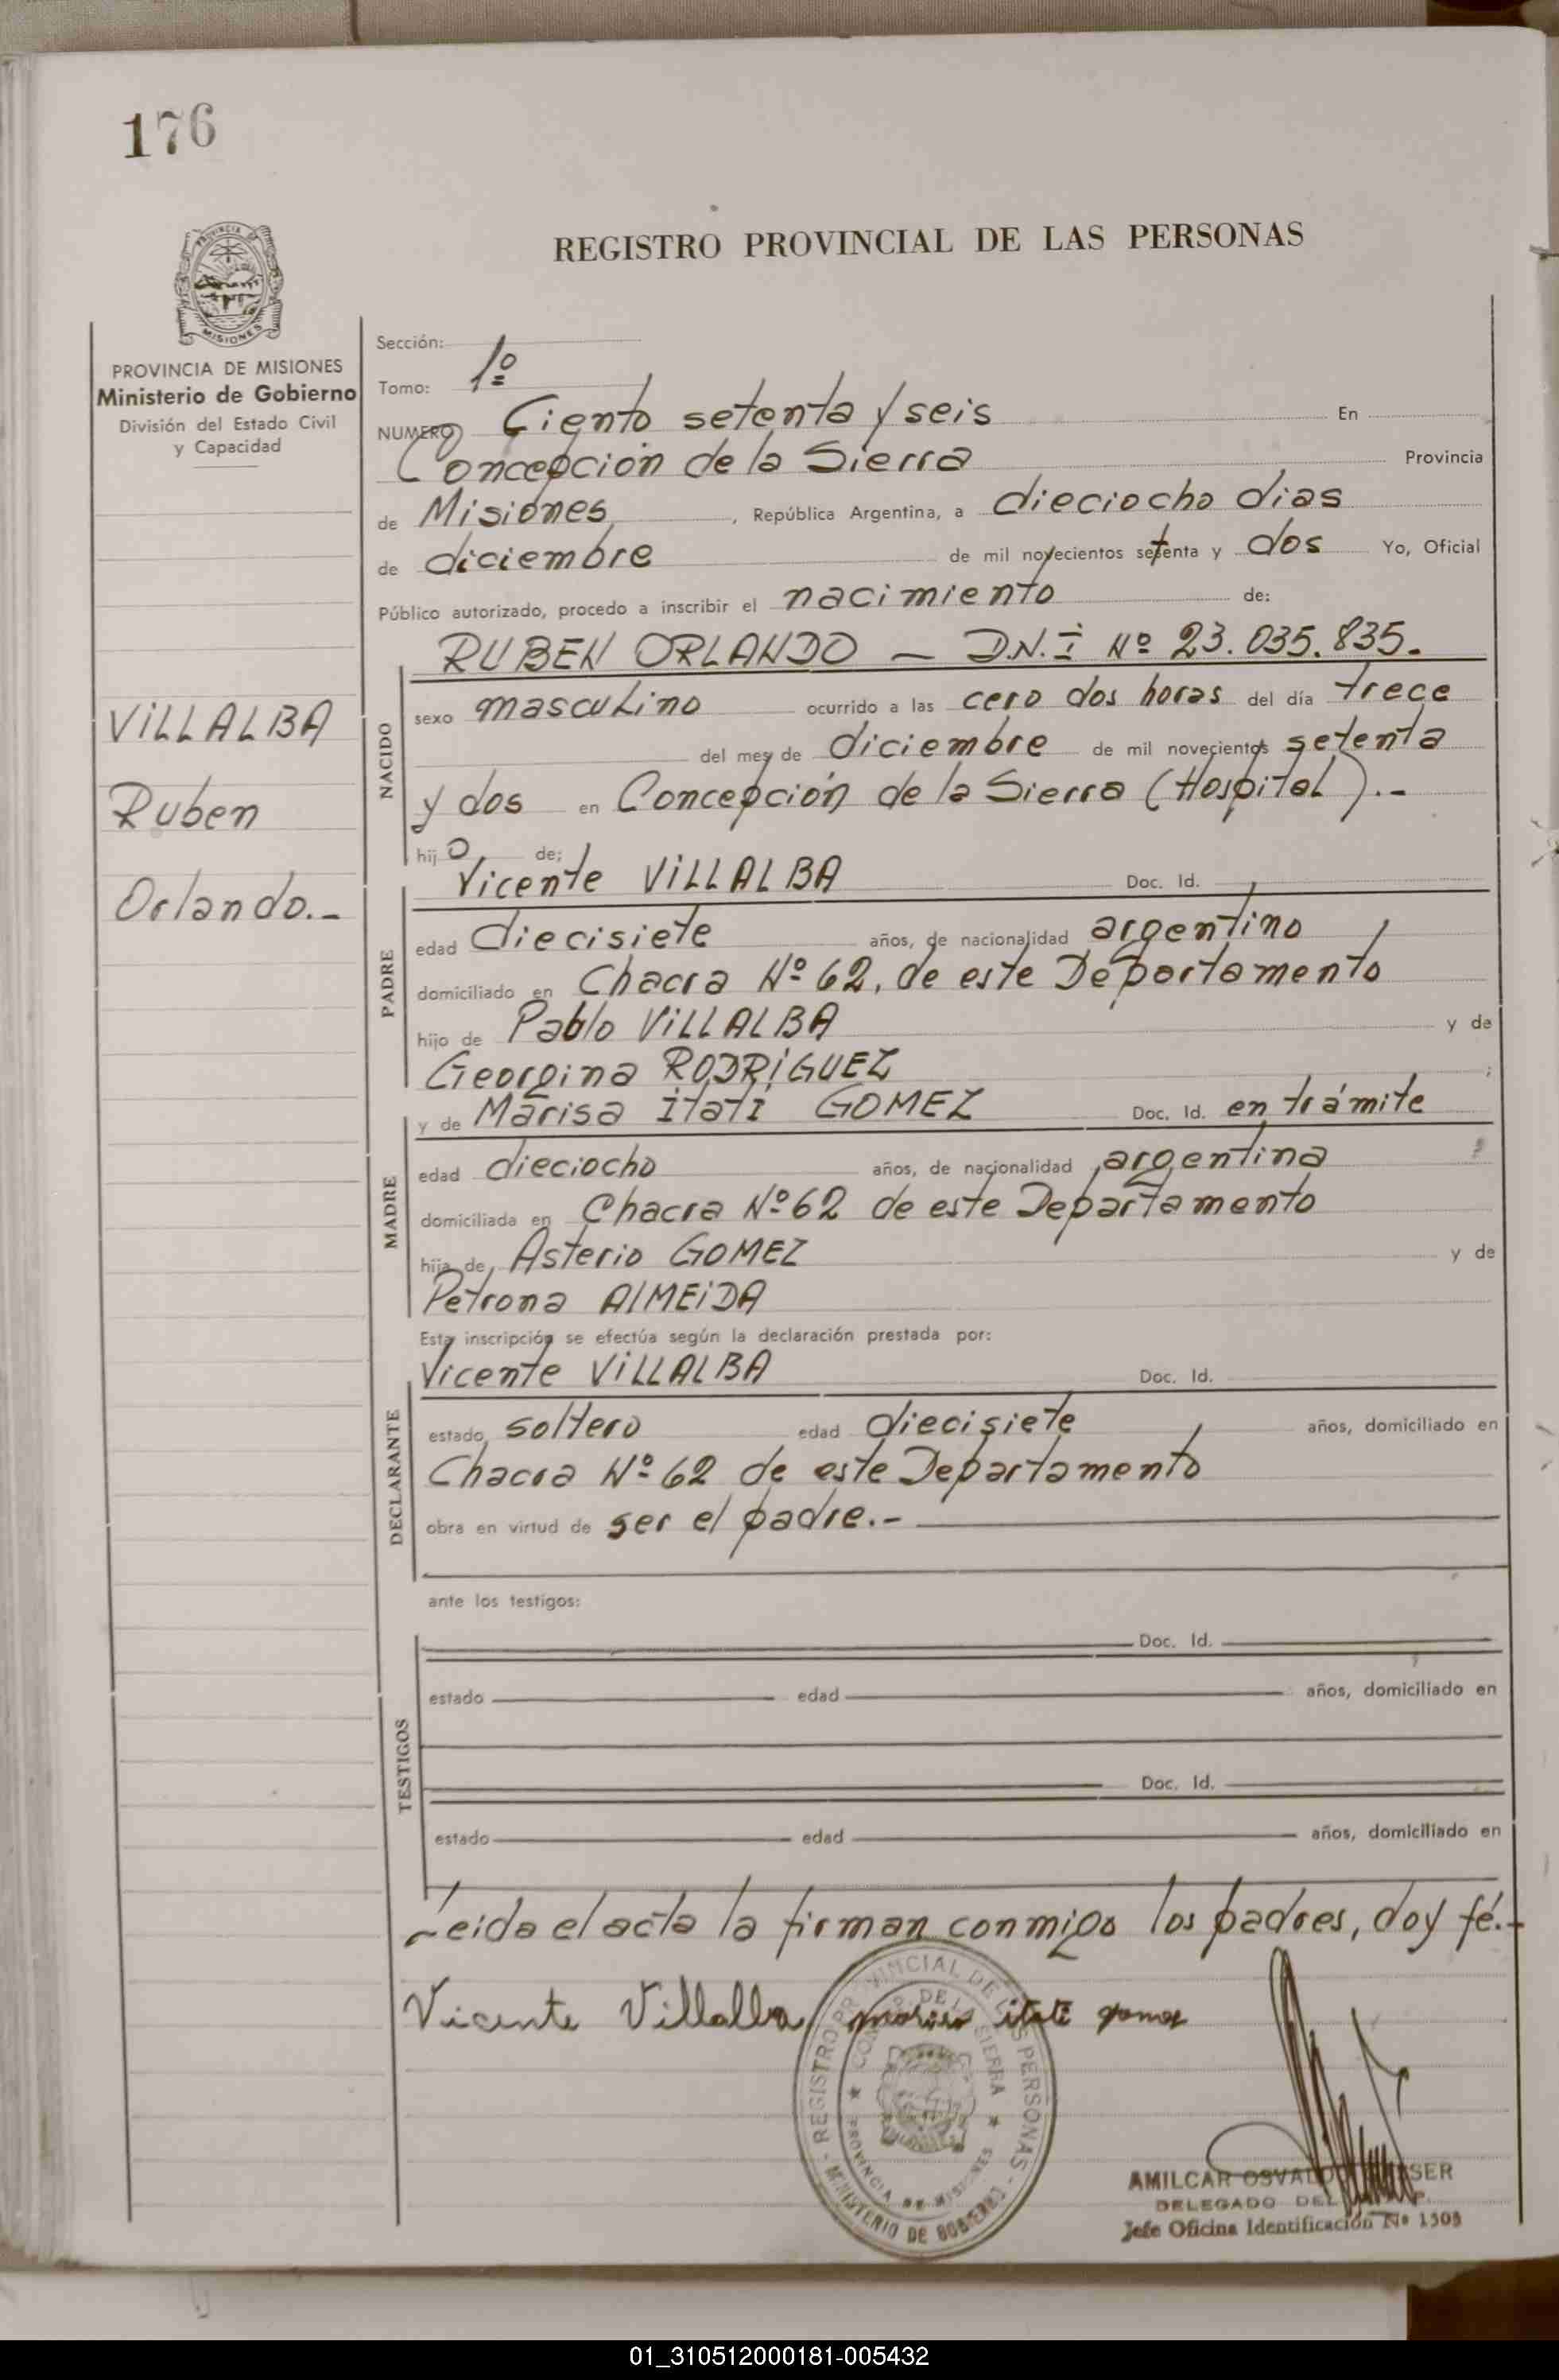 176
REGISTRO PROVINCIAL DE LAS PERSONAS
PROVINCIA DE MISIONES
Ministerio de Gobierno
División del Estado Civil
y Capacidad
VILLALBA
Ruben
Orlando.-
Sección:
Tomo: 1º
NUMERO Ciento setenta y seis En
Concepción de la Sierra Provincia
de Misiones, República Argentina, a dieciocho dias
de diciembre de mil novecientos setenta y dos Yo, Oficial
Público autorizado, procedo a inscribir el nacimiento de:
RUBEN ORLANDO — D.N.I Nº 23.035.835.
NACIDO
sexo masculino ocurrido a las cero dos horas del día trece
del mes de diciembre de mil novecientos setenta
y dos en Concepción de la Sierra (Hospital).-
hijo de:
Vicente VILLALBA Doc. Id.
PADRE
edad diecisiete años, de nacionalidad argentino
domiciliado en Chacra Nº 62, de este Departamento
hijo de Pablo VILLALBA y de
Georgina RODRIGUEZ ;
y de Marisa Itatí GOMEZ Doc. Id. en trámite
MADRE
edad dieciocho años, de nacionalidad argentina
domiciliada en Chacra Nº 62 de este Departamento
hija de Asterio GOMEZ y de
Petrona AlMEIDA
Esta inscripción se efectúa según la declaración prestada por:
Vicente VILLALBA Doc. Id.
DECLARANTE
estado soltero edad diecisiete años, domiciliado en
Chacra Nº 62 de este Departamento
obra en virtud de ser el padre.-
ante los testigos:
TESTIGOS
Doc. Id.
estado edad años, domiciliado en
Doc. Id.
estado edad años, domiciliado en
Leida el acta la firman conmigo los padres, doy fé.-
Vicente Villalba marisa itati gomez
REGISTRO PROVINCIAL DE LAS PERSONAS - MINISTERIO DE GOBIERNO -
DE LA SIERRA
PROVINCIA DE MISIONES
AMILCAR
DELEGADO DEL
Jefe Oficina Identificación Nº 1505
01_310512000181-005432